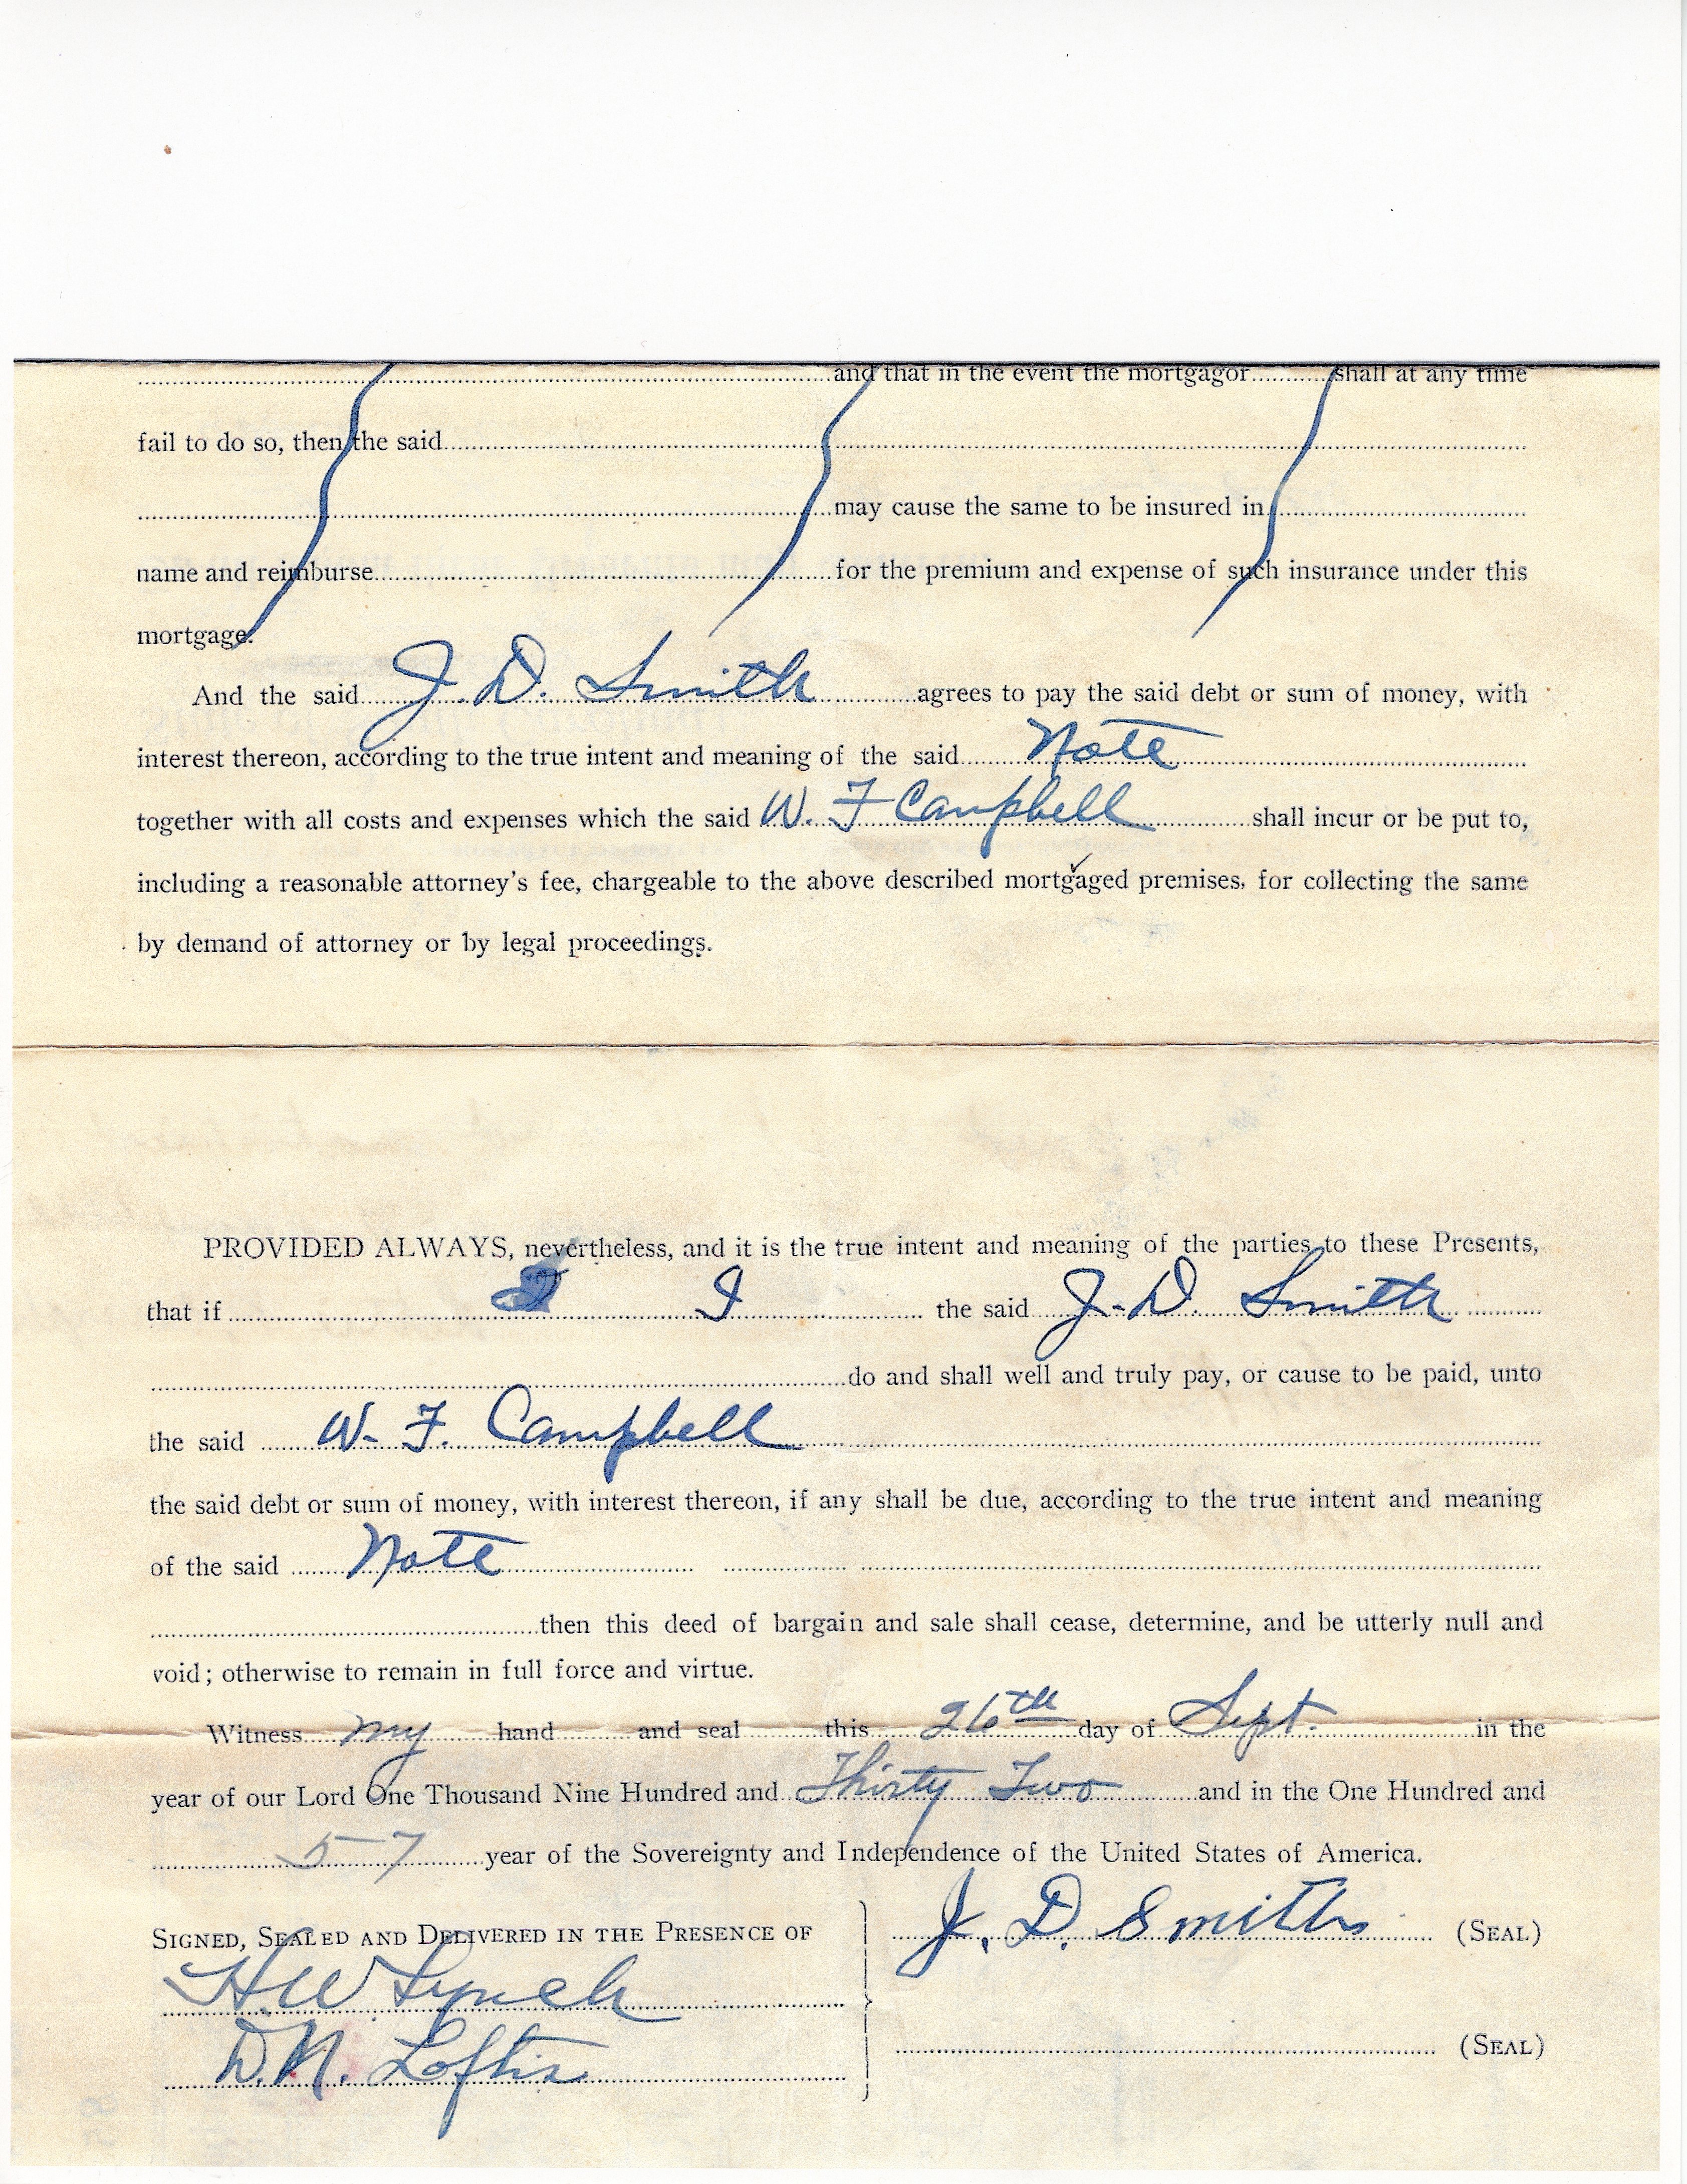 and that in the event the mortgagor shall at any time
fail to do so, then the said
may cause the same to be insured in
name and reimburse for the premium and expense of such insurance under this
mortgage.
And the said J. D. Smith agrees to pay the said debt or sum of money, with
interest thereon, according to the true intent and meaning of the said Note
together with all costs and expenses which the said W. F Campbell shall incur or be put to,
including a reasonable attorney's fee, chargeable to the above described mortgaged premises, for collecting the same
by demand of attorney or by legal proceedings.
PROVIDED ALWAYS, nevertheless, and it is the true intent and meaning of the parties to these Presents,
that if I the said J. D. Smith
do and shall well and truly pay, or cause to be paid, unto
the said W. F. Campbell
the said debt or sum of money, with interest thereon, if any shall be due, according to the true intent and meaning
of the said Note
then this deed of bargain and sale shall cease, determine, and be utterly null and
void; otherwise to remain in full force and virtue.
Witness my hand and seal this 26th day of Sept. in the
year of our Lord One Thousand Nine Hundred and Thirty Two and in the One Hundred and
57 year of the Sovereignty and Independence of the United States of America.
SIGNED, SEALED AND DELIVERED IN THE PRESENCE OF
J. D. Smith (SEAL)
H. W Lynch
D. N. Loftis
(SEAL)